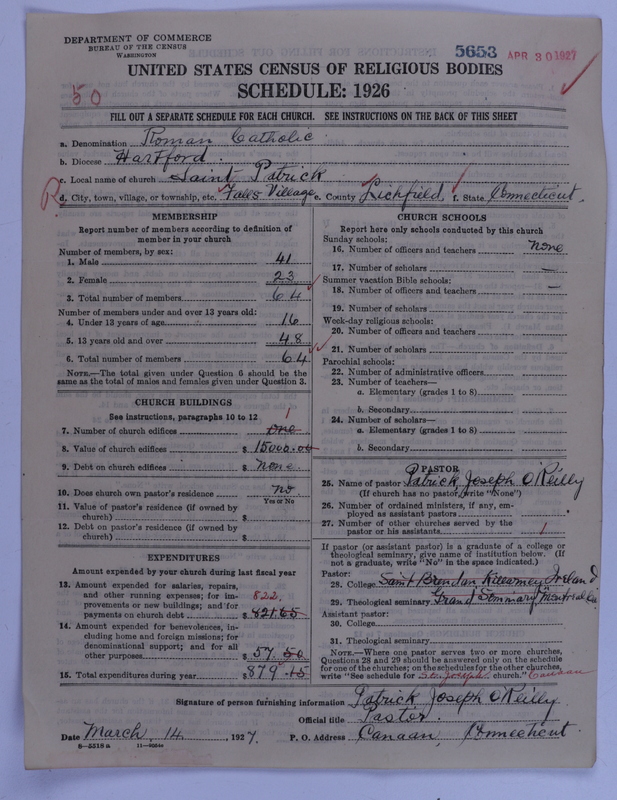 DEPARTMENT OF COMMERCE
BUREAU OF THE CENSUS
WASHINGTON
5653 APR 30 1927
UNITED STATES CENSUS OF RELIGIOUS BODIES
50
SCHEDULE: 1926
FILL OUT A SEPARATE SCHEDULE FOR EACH CHURCH. SEE INSTRUCTIONS ON THE BACK OF THIS SHEET
a. Denomination Roman Catholic.
b. Diocese Hartford.
c. Local name of church Saint Patrick
R d. City, town, village, or township, etc. Falls Village e. County Lichfield, f. State Connecticut.
MEMBERSHIP
Report number of members according to definition of
member in your church
Number of members, by sex:
1. Male 41
2. Female 23
3. Total number of members 64
Number of members under and over 13 years old:
4. Under 13 years of age 16
5. 13 years old and over 48
6. Total number of members 64
NOTE.—The total given under Question 6 should be the
same as the total of males and females given under Question 3.
CHURCH BUILDINGS
See instructions, paragraphs 10 to 12
1
7. Number of church edifices one
8. Value of church edifices $ 15000.00
9. Debt on church edifices $ None.
10. Does church own pastor's residence No
Yes or No
11. Value of pastor's residence (if owned by
church) $
12. Debt on pastor's residence (if owned by
church) $
EXPENDITURES
Amount expended by your church during last fiscal year
13. Amount expended for salaries, repairs,
and other running expenses; for im- 822.
provements or new buildings; and for
payments on church debt $ 821.65
14. Amount expended for benevolences, in-
cluding home and foreign missions; for
denominational support; and for all
other purposes $ 57.50
15. Total expenditures during year $ 879.15
CHURCH SCHOOLS
Report here only schools conducted by this church
Sunday schools:
16. Number of officers and teachers None
17. Number of scholars —
Summer vacation Bible schools:
18. Number of officers and teachers —
19. Number of scholars
Week-day religious schools:
20. Number of officers and teachers
21. Number of scholars
Parochial schools:
22. Number of administrative officers
23. Number of teachers—
a. Elementary (grades 1 to 8)
b. Secondary
24. Number of scholars—
a. Elementary (grades 1 to 8)
b. Secondary
PASTOR
25. Name of pastor Patrick Joseph O'Reilly
(If church has no pastor, write "None")
26. Number of ordained ministers, if any, em-
ployed as assistant pastors
27. Number of other churches served by the
pastor or his assistants 1
If pastor (or assistant pastor) is a graduate of a college or
theological seminary, give name of institution below. (If
not a graduate, write "No" in the space indicated.)
Pastor:
28. College Saint Brendan Killarney Ireland
29. Theological seminary Grand Seminary Montreal Ca
Assistant pastor:
30. College
31. Theological seminary
NOTE.—Where one pastor serves two or more churches,
Questions 28 and 29 should be answered only on the schedule
for one of the churches; on the schedules for the other churches,
write "See schedule for St. Joseph's church." Canaan
Signature of person furnishing information Patrick Joseph O'Reilly
Official title Pastor.
Date March 14, 1927. P. O. Address Canaan, Connecticut.
8—5518 a 11—9054a